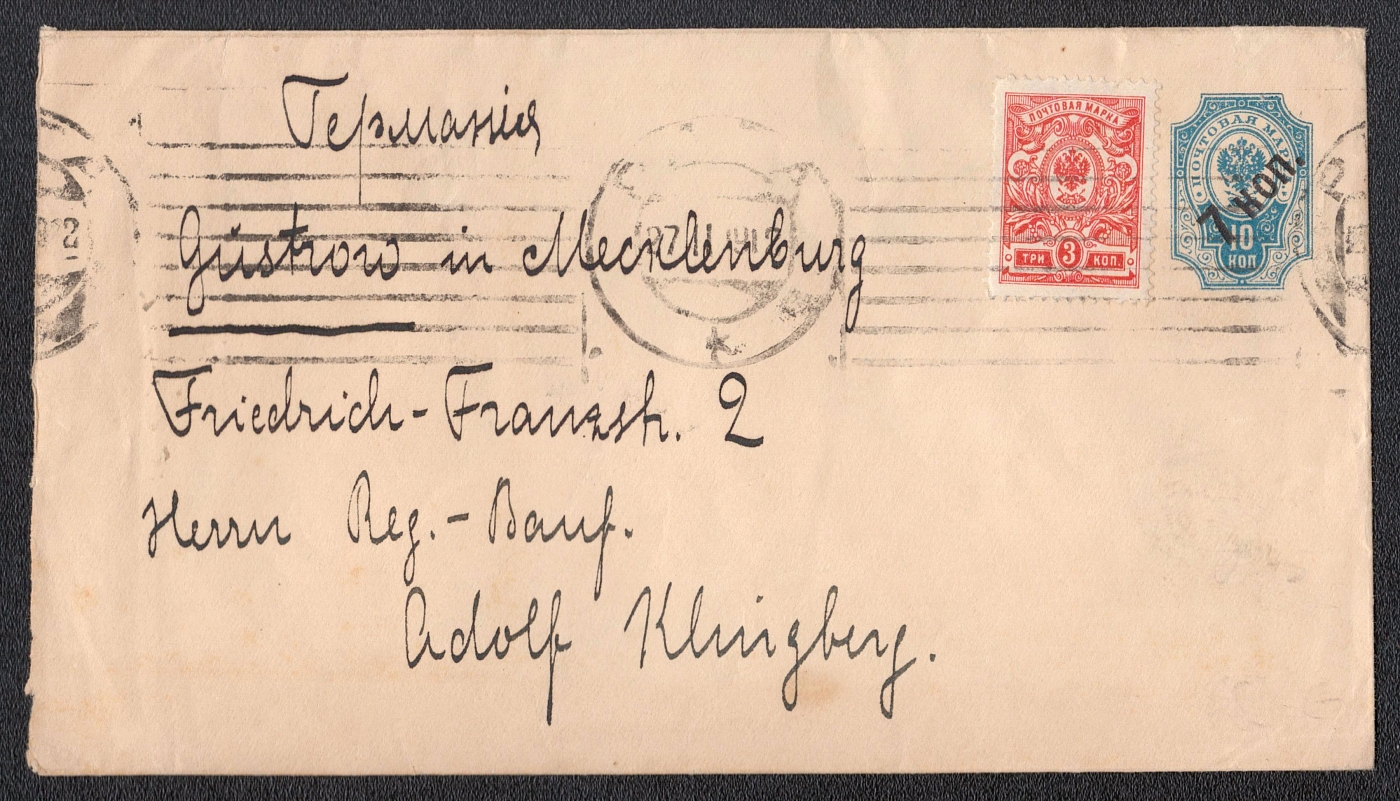 Германія
Güstrow in Mecklenburg
Friedrich-Franzstr. 2
Herrn Reg.-Bauf.
Adolf Klingberg.
ПОЧТОВАЯ МАРКА
ТРИ 3 КОП.
ПОЧТОВАЯ МАРКА
7 коп.
10
КОП